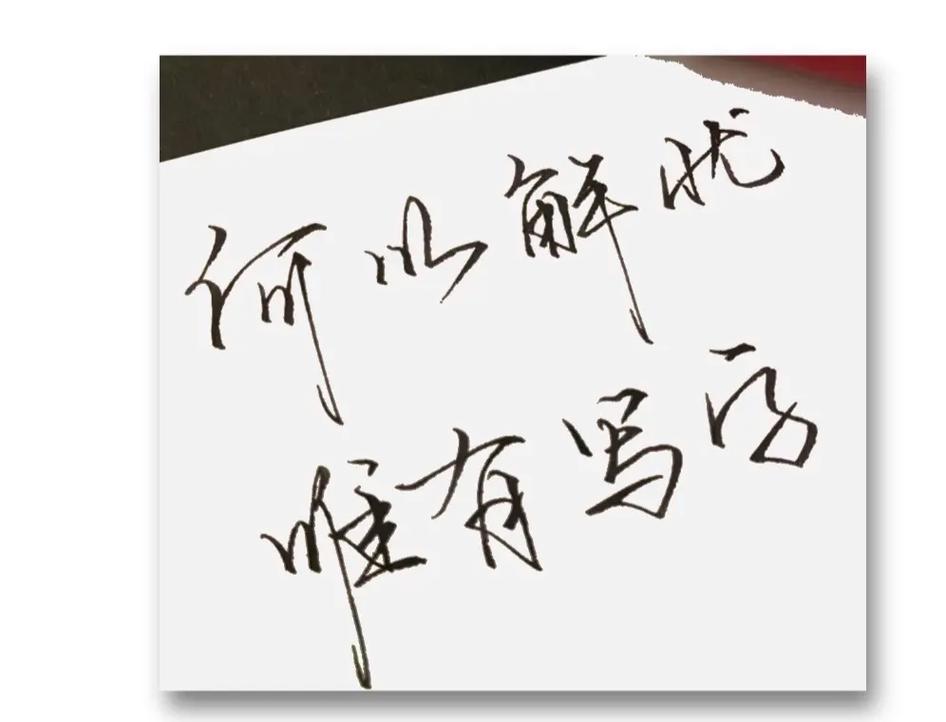 何以解忧
唯有写字